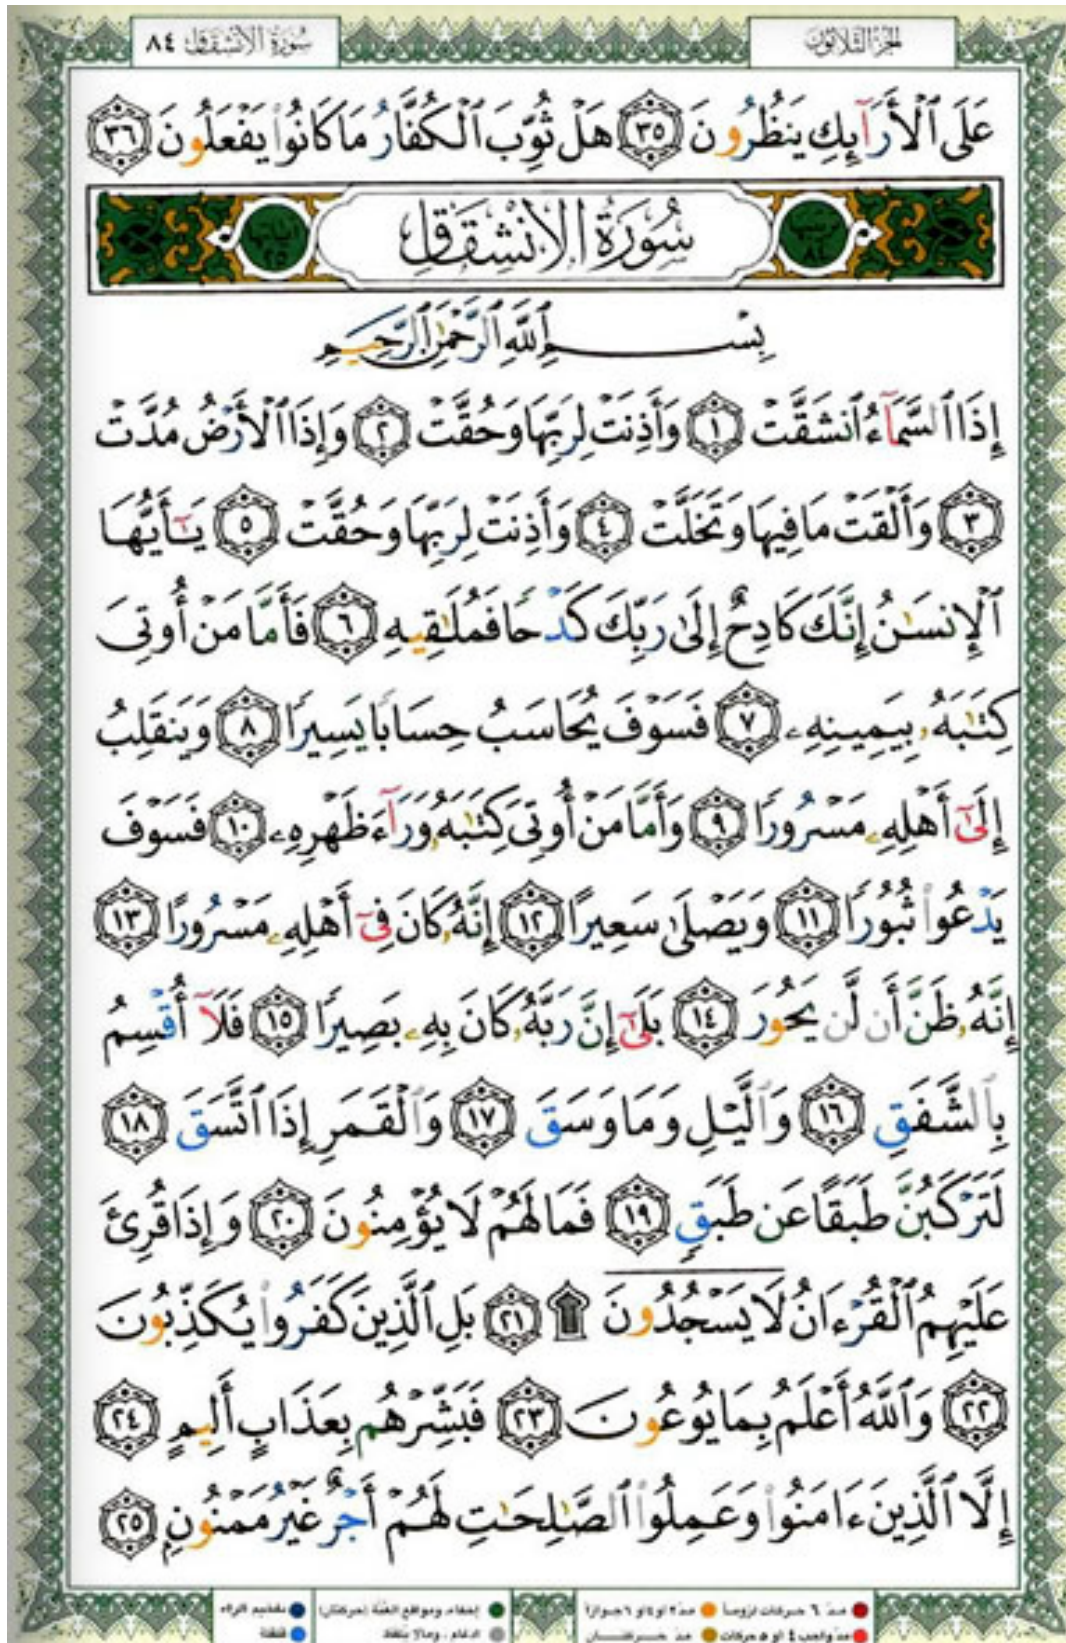 سُورَةُ الانْشِقَاقِ ٨٤
الجُزْءُ الثَّلَاثُونَ
عَلَى ٱلْأَرَآئِكِ يَنظُرُونَ ٣٥ هَلْ ثُوِّبَ ٱلْكُفَّارُ مَا كَانُوا۟ يَفْعَلُونَ ٣٦
ترتيبها ٨٤ سُورَةُ الانْشِقَاقِ آياتها ٢٥
بِسْمِ ٱللَّهِ ٱلرَّحْمَٰنِ ٱلرَّحِيمِ
إِذَا ٱلسَّمَآءُ ٱنشَقَّتْ ١ وَأَذِنَتْ لِرَبِّهَا وَحُقَّتْ ٢ وَإِذَا ٱلْأَرْضُ مُدَّتْ
٣ وَأَلْقَتْ مَا فِيهَا وَتَخَلَّتْ ٤ وَأَذِنَتْ لِرَبِّهَا وَحُقَّتْ ٥ يَٰٓأَيُّهَا
ٱلْإِنسَٰنُ إِنَّكَ كَادِحٌ إِلَىٰ رَبِّكَ كَدْحًا فَمُلَٰقِيهِ ٦ فَأَمَّا مَنْ أُوتِىَ
كِتَٰبَهُۥ بِيَمِينِهِۦ ٧ فَسَوْفَ يُحَاسَبُ حِسَابًا يَسِيرًا ٨ وَيَنقَلِبُ
إِلَىٰٓ أَهْلِهِۦ مَسْرُورًا ٩ وَأَمَّا مَنْ أُوتِىَ كِتَٰبَهُۥ وَرَآءَ ظَهْرِهِۦ ١٠ فَسَوْفَ
يَدْعُوا۟ ثُبُورًا ١١ وَيَصْلَىٰ سَعِيرًا ١٢ إِنَّهُۥ كَانَ فِىٓ أَهْلِهِۦ مَسْرُورًا ١٣
إِنَّهُۥ ظَنَّ أَن لَّن يَحُورَ ١٤ بَلَىٰٓ إِنَّ رَبَّهُۥ كَانَ بِهِۦ بَصِيرًا ١٥ فَلَآ أُقْسِمُ
بِٱلشَّفَقِ ١٦ وَٱلَّيْلِ وَمَا وَسَقَ ١٧ وَٱلْقَمَرِ إِذَا ٱتَّسَقَ ١٨
لَتَرْكَبُنَّ طَبَقًا عَن طَبَقٍ ١٩ فَمَا لَهُمْ لَا يُؤْمِنُونَ ٢٠ وَإِذَا قُرِئَ
عَلَيْهِمُ ٱلْقُرْءَانُ لَا يَسْجُدُونَ ۩ ٢١ بَلِ ٱلَّذِينَ كَفَرُوا۟ يُكَذِّبُونَ
٢٢ وَٱللَّهُ أَعْلَمُ بِمَا يُوعُونَ ٢٣ فَبَشِّرْهُم بِعَذَابٍ أَلِيمٍ ٢٤
إِلَّا ٱلَّذِينَ ءَامَنُوا۟ وَعَمِلُوا۟ ٱلصَّٰلِحَٰتِ لَهُمْ أَجْرٌ غَيْرُ مَمْنُونٍ ٢٥
مدّ ٦ حركات لزوماً مدّ ٢ أو ٤ أو ٦ جوازاً إخفاء، ومواقع الغنّة (حركتان) تفخيم الراء
مدّ واجب ٤ أو ٥ حركات مدّ حركتان ادغام، ومالا يلفظ قلقلة